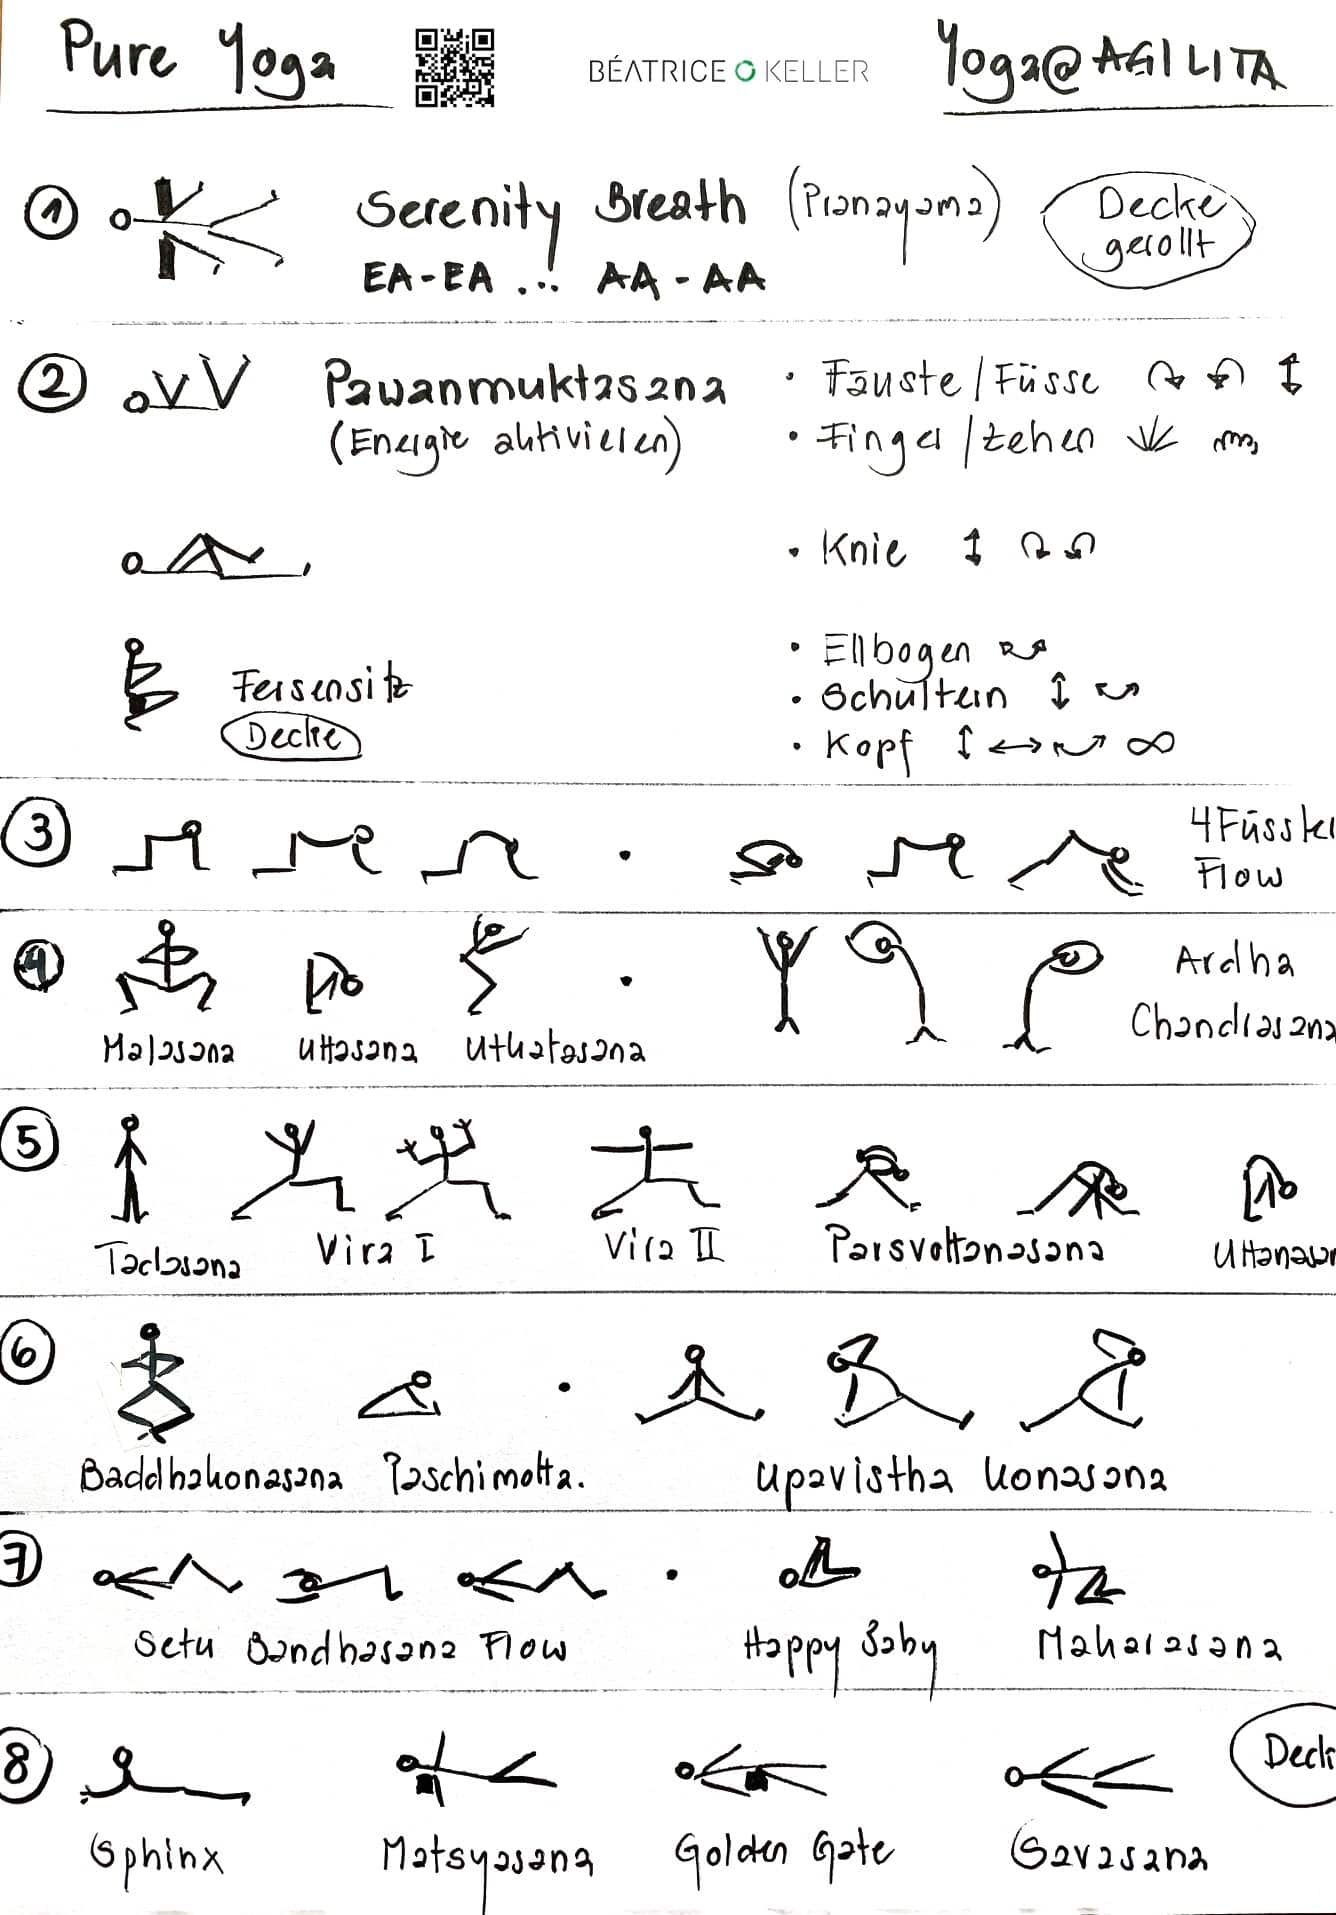 Pure Yoga
BÉATRICE KELLER
Yoga@AGILITA
1 Serenity Breath (Pranayama)
EA-EA ... AA-AA
Decke
gerollt
2 Pawanmuktasana
(Energie aktivieren)
• Fäuste/Füsse
• Finger/Zehen
• Knie
Fersensitz
Decke
• Ellbogen
• Schultern
• Kopf ∞
3 4Füssler
Flow
4 Ardha
Chandrasana
Malasana Uttasana Utkatasana
5
Tadasana Vira I Vira II Parsvottanasana Uttanasan
6
Baddhakonasana Paschimotta. Upavistha Konasana
7
Setu Bandhasana Flow Happy Baby Makarasana
8 Deck
Sphinx Matsyasana Golden Gate Savasana